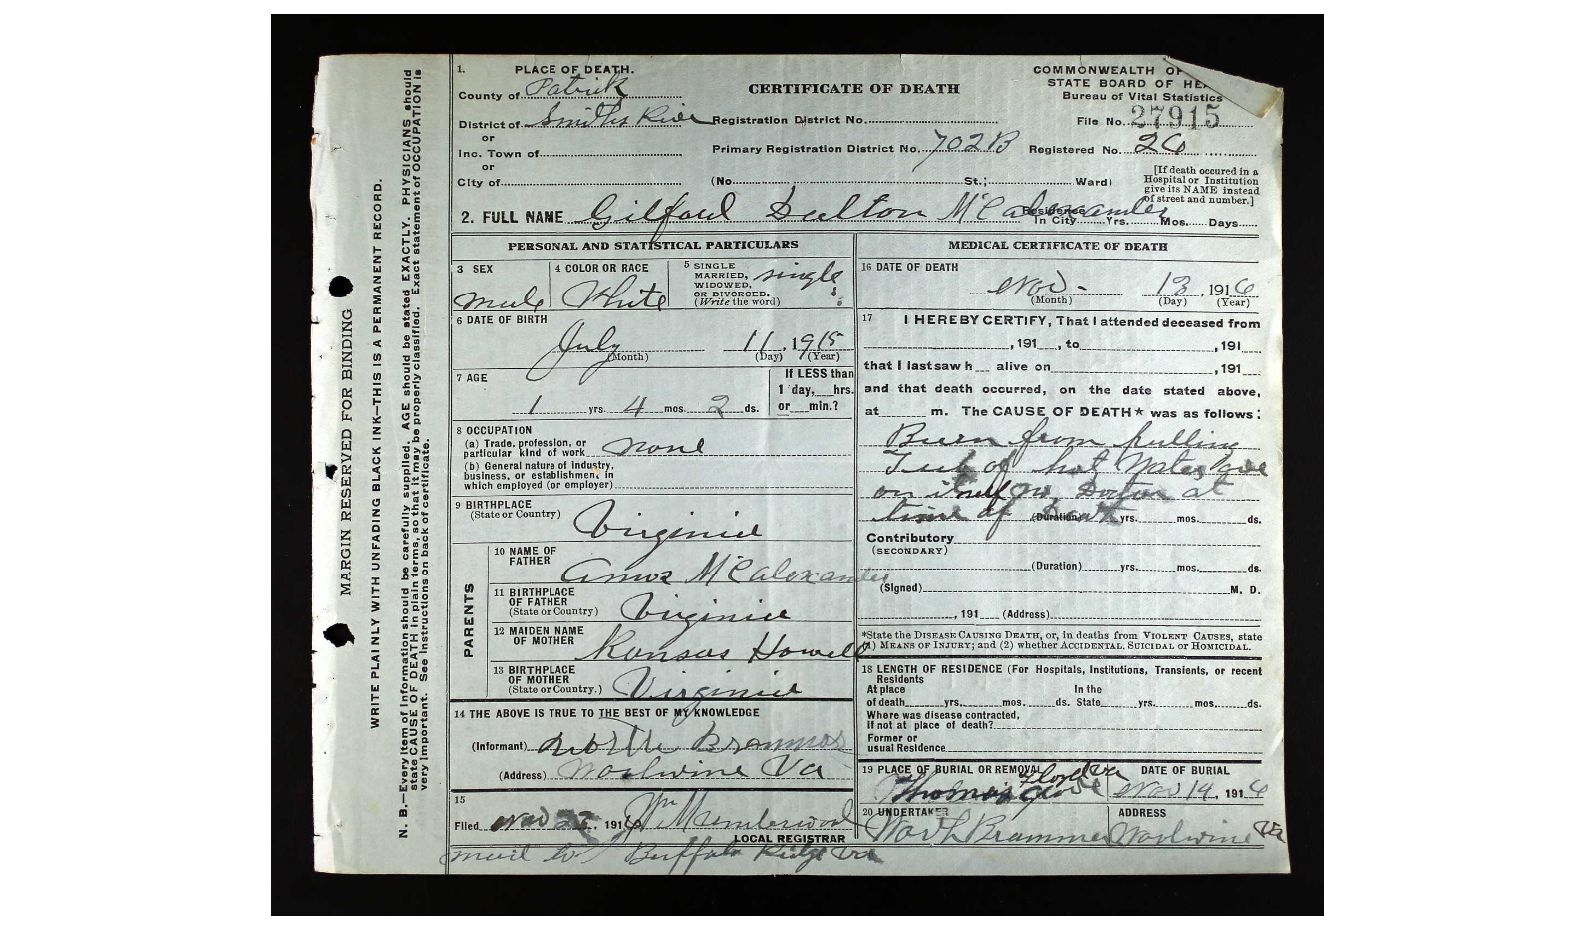 MARGIN RESERVED FOR BINDING
WRITE PLAINLY WITH UNFADING BLACK INK—THIS IS A PERMANENT RECORD.
N. B.—Every item of information should be carefully supplied. AGE should be stated EXACTLY. PHYSICIANS should
state CAUSE OF DEATH in plain terms, so that it may be properly classified. Exact statement of OCCUPATION is
very important. See Instructions on back of certificate.
1. PLACE OF DEATH.
County of Patrick
District of Smiths River
or
Inc. Town of
or
City of
CERTIFICATE OF DEATH
Registration District No.
Primary Registration District No. 702B
(No. St.; Ward)
COMMONWEALTH OF
STATE BOARD OF HEA
Bureau of Vital Statistics
File No. 27915
Registered No. 26
[If death occured in a
Hospital or Institution
give its NAME instead
of street and number.]
2. FULL NAME Gilford Dalton McAlexander
Residence
In City Yrs. Mos. Days
PERSONAL AND STATISTICAL PARTICULARS
3 SEX
male
4 COLOR OR RACE
White
5 SINGLE
MARRIED,
WIDOWED,
OR DIVORCED.
(Write the word)
single
6 DATE OF BIRTH
July 11, 1915
(Month) (Day) (Year)
7 AGE
1 yrs. 4 mos. 2 ds.
If LESS than
1 day, hrs.
or min.?
8 OCCUPATION
(a) Trade, profession, or
particular kind of work none
(b) General nature of industry,
business, or establishment in
which employed (or employer)
9 BIRTHPLACE
(State or Country)
Virginia
PARENTS
10 NAME OF
FATHER
Amos McAlexander
11 BIRTHPLACE
OF FATHER
(State or Country)
Virginia
12 MAIDEN NAME
OF MOTHER
Kansas Howell
13 BIRTHPLACE
OF MOTHER
(State or Country.)
Virginia
14 THE ABOVE IS TRUE TO THE BEST OF MY KNOWLEDGE
(Informant) Brammer
(Address) Woolwine Va
15
Filed Nov 1916 Wm
LOCAL REGISTRAR
mail to Buffalo Ridge Va
MEDICAL CERTIFICATE OF DEATH
16 DATE OF DEATH
Nov - 13, 1916
(Month) (Day) (Year)
17 I HEREBY CERTIFY, That I attended deceased from
, 191 , to , 191
that I last saw h alive on , 191
and that death occurred, on the date stated above,
at m. The CAUSE OF DEATH* was as follows:
Burn from pulling
Tub of hot Water over
on itself no Doctor at
time of Death
(Duration) yrs. mos. ds.
Contributory
(SECONDARY)
(Duration) yrs. mos. ds.
(Signed) M. D.
, 191 (Address)
*State the DISEASE CAUSING DEATH, or, in deaths from VIOLENT CAUSES, state
(1) MEANS OF INJURY; and (2) whether ACCIDENTAL, SUICIDAL or HOMICIDAL.
18 LENGTH OF RESIDENCE (For Hospitals, Institutions, Transients, or recent
Residents
At place In the
of death yrs. mos. ds. State yrs. mos. ds.
Where was disease contracted,
If not at place of death?
Former or
usual Residence
19 PLACE OF BURIAL OR REMOVAL
Floyd Va
Thomas Grove
DATE OF BURIAL
Nov 14, 1916
20 UNDERTAKER
North Brammer
ADDRESS
Woolwine Va